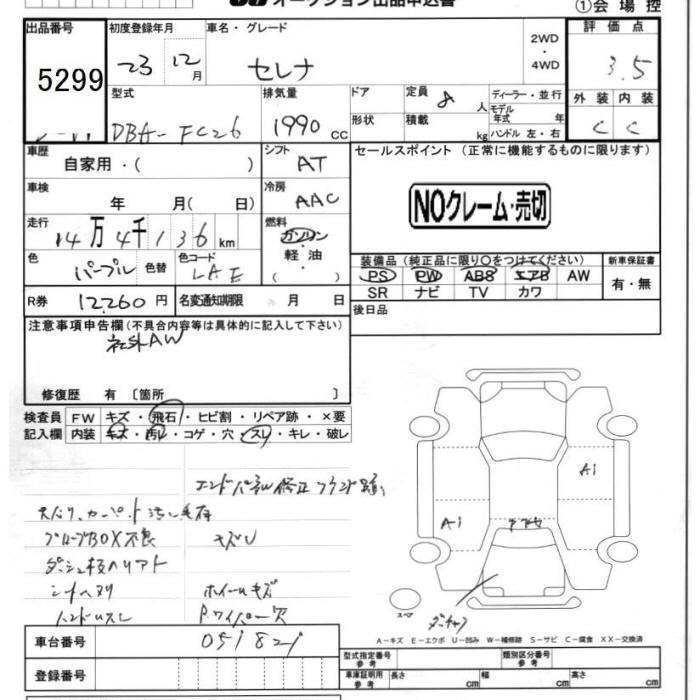 オークション出品申込書
①会場控
出品番号 初度登録年月 車名・グレード 2WD・4WD 評価点
5299 23 12月 セレナ 3.5
型式 排気量 ドア 定員 8人 ディーラー・並行 外装 内装
DBA-FC26 1990cc 形状 積載 kg モデル年式 年 ハンドル 左・右 C C
車歴 自家用・( ) シフト AT セールスポイント (正常に機能するものに限ります)
車検 年 月( 日) 冷房 AAC
NOクレーム・売切
走行 14万4千136km 燃料 ガソリン・軽油・( )
装備品 (純正品に限り○をつけてください) 新車保証書
色 パープル 色替 色コード LAE
PS PW ABS エアB AW 有・無
SR ナビ TV カワ
R券 12,260円 名変通知期限 月 日
後日品
注意事項申告欄(不具合内容等は具体的に記入して下さい)
社外AW
修復歴 有〔箇所 〕
検査員 FW キズ・飛石・ヒビ割・リペア跡・×要
記入欄 内装 キズ・汚レ・コゲ・穴・スレ・キレ・破レ
A1
A1
スペア
A-キズ E-エクボ U-凹み W-補修跡 S-サビ C-腐食 XX-交換済
ホイールキズ
車台番号 051821
登録番号
型式指定番号 参考 類別区分番号 参考
車庫証明用 参考 長さ cm 幅 cm 高さ cm